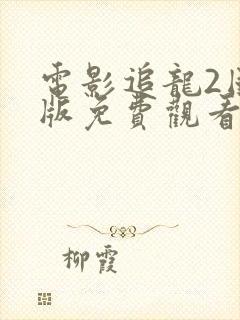 電影追龍2
版免費觀看
柳霞